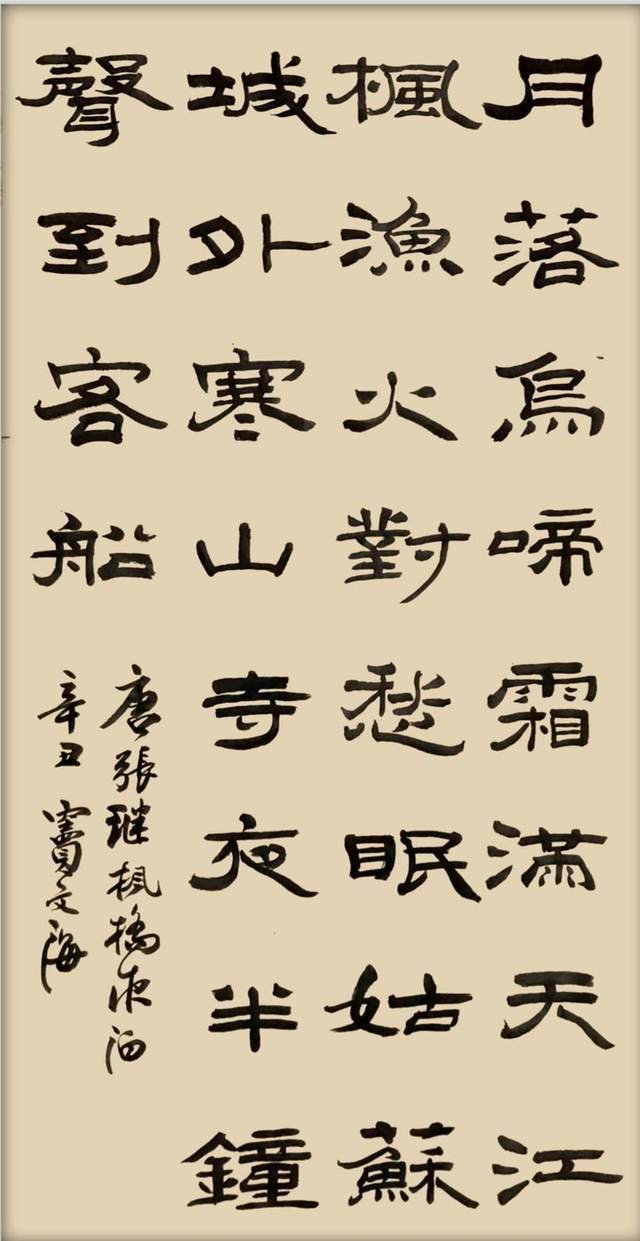 月落烏啼霜滿天江
楓漁火對愁眠姑蘇
城外寒山寺夜半鐘
聲到客船
唐張继枫橋夜泊
辛丑竇文海